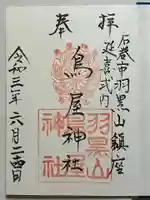 石巻市羽黒山鎮座
延喜式内
拝
奉
鳥屋神社
羽黒山
鳥屋
神社
令和二年六月二十四日